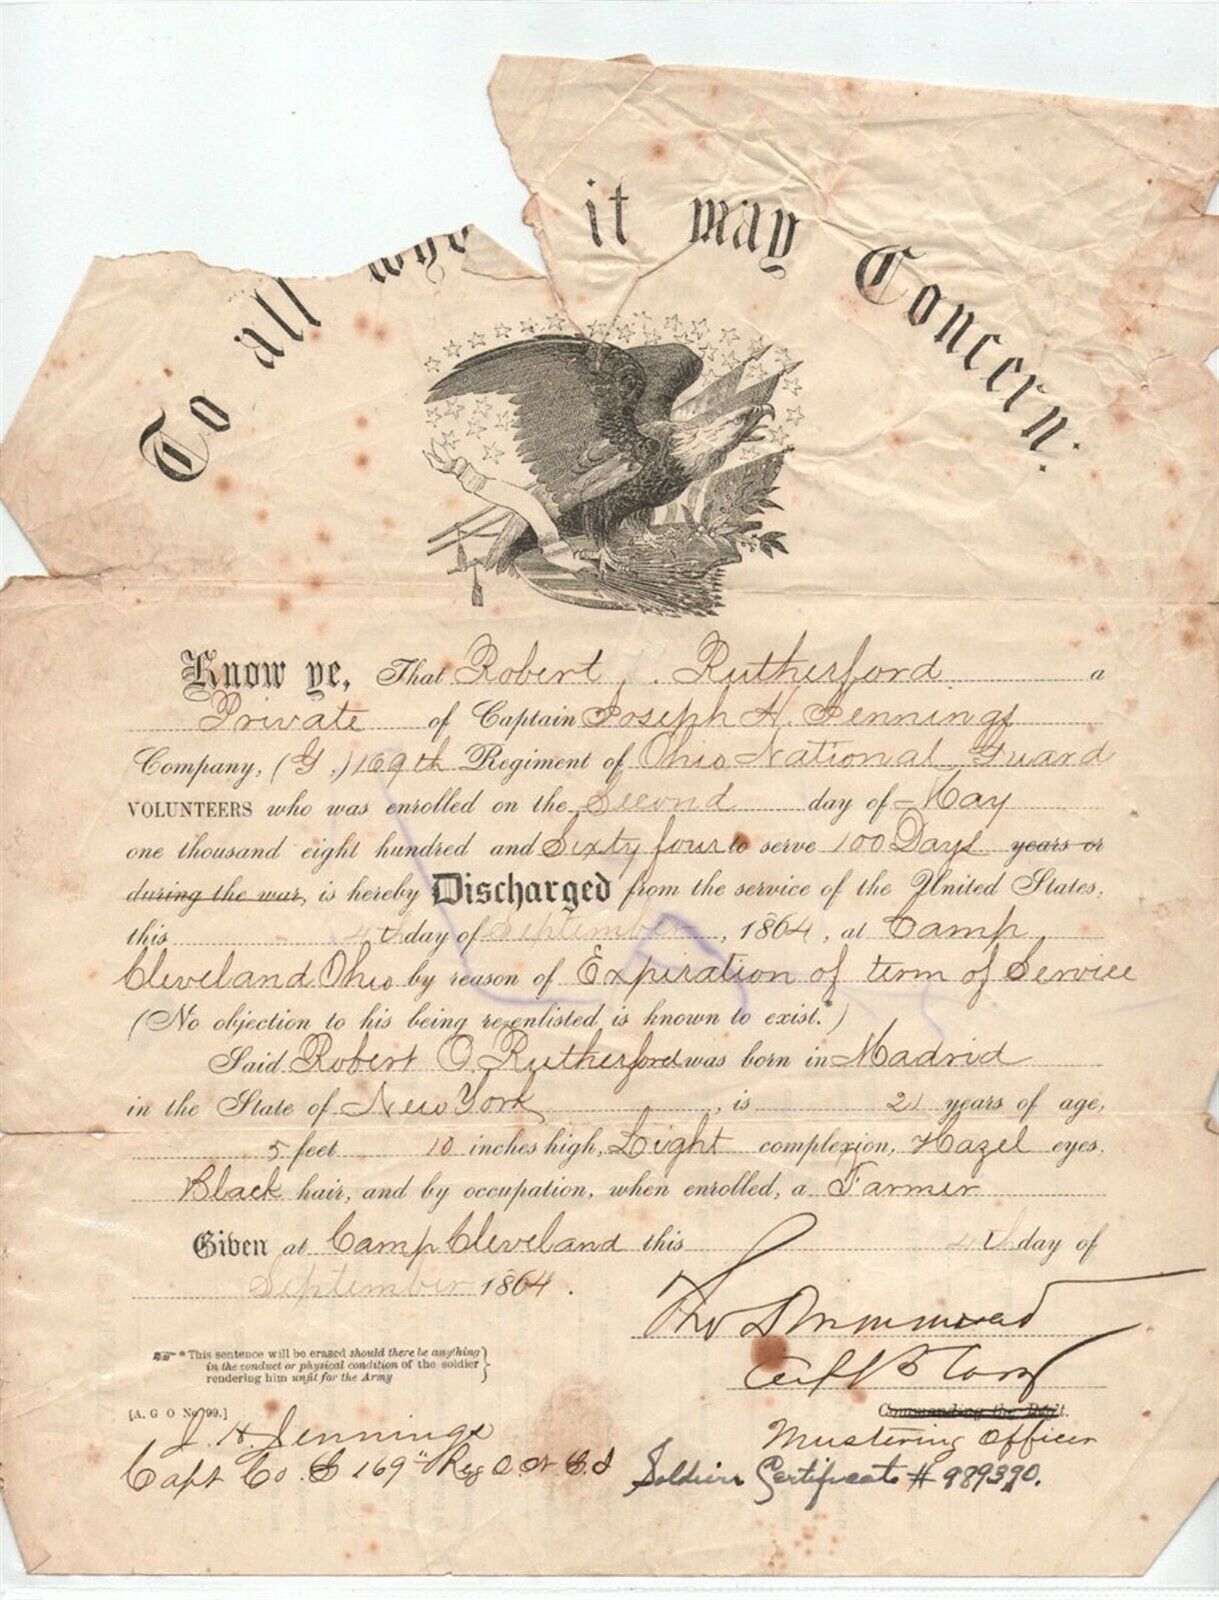 To all who it may Concern:
Know ye, That Robert . Rutherford a
Private of Captain Joseph H. Jennings
Company, (G.) 169th Regiment of Ohio National Guard
VOLUNTEERS who was enrolled on the Second day of May
one thousand eight hundred and Sixty four to serve 100 Days years or
during the war, is hereby Discharged from the service of the United States,
this 4th day of September, 1864, at Camp
Cleveland Ohio by reason of Expiration of term of Service
(No objection to his being re-enlisted is known to exist.*)
Said Robert O. Rutherford was born in Madrid
in the State of New York, is 21 years of age,
5 feet 10 inches high, Light complexion, Hazel eyes,
Black hair, and by occupation, when enrolled, a Farmer
Given at Camp Cleveland this 4th day of
September 1864.
*This sentence will be erased should there be anything
in the conduct or physical condition of the soldier
rendering him unfit for the Army
[A. G. O No. 99.]
Commanding the
Mustering Officer
J. H. Jennings
Capt Co. G 169th Reg O
Soldiers Certificate # 989390.